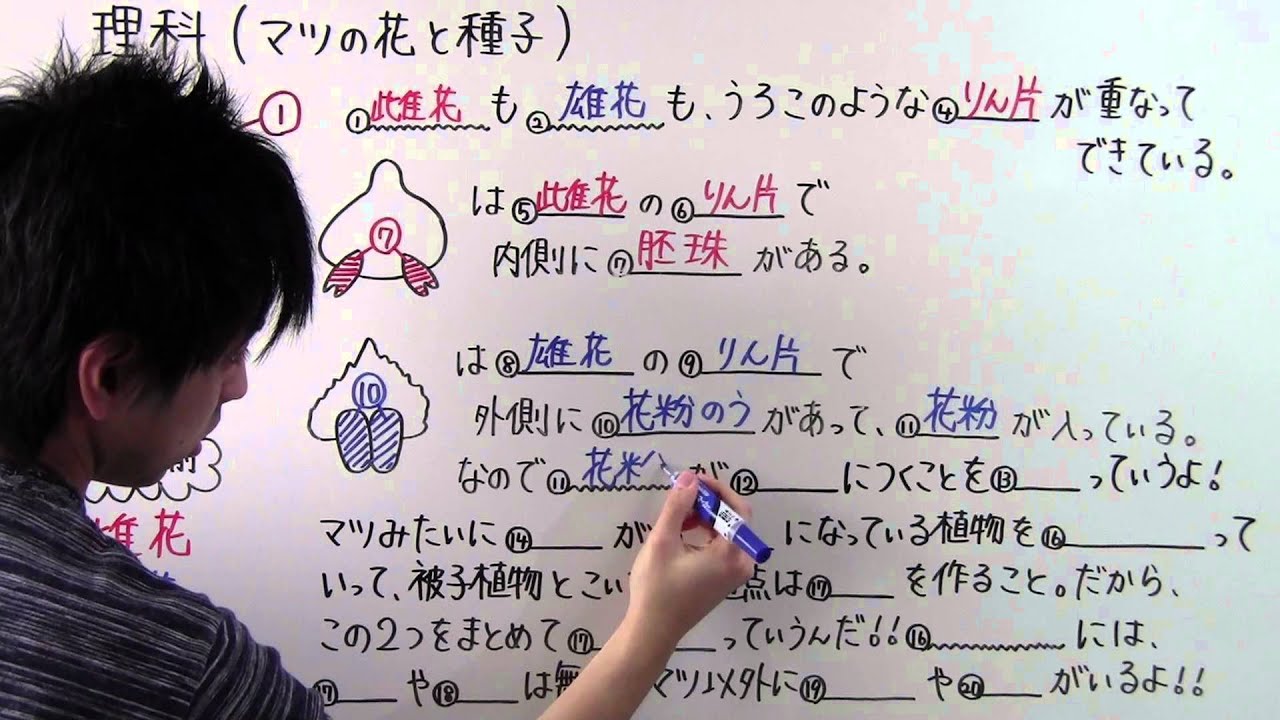 理科(マツの花と種子)
① ①雌花も②雄花も、うろこのような④りん片が重なって
できている。
は⑤雌花の⑥りん片で
⑦ 内側に⑦胚珠がある。
は⑧雄花の⑨りん片で
⑩ 外側に⑩花粉のうがあって、⑪花粉が入っている。
なので⑪花粉が⑫＿＿につくことを⑬＿＿っていうよ!
前
雌花
マツみたいに⑭＿＿が になっている植物を⑯＿＿って
いって、被子植物と 点は⑰＿＿を作ること。だから、
この2つをまとめて⑰＿＿っていうんだ!!⑯＿＿には、
⑰＿＿や⑱＿＿は無 マツ以外に⑲＿＿や⑳＿＿がいるよ!!